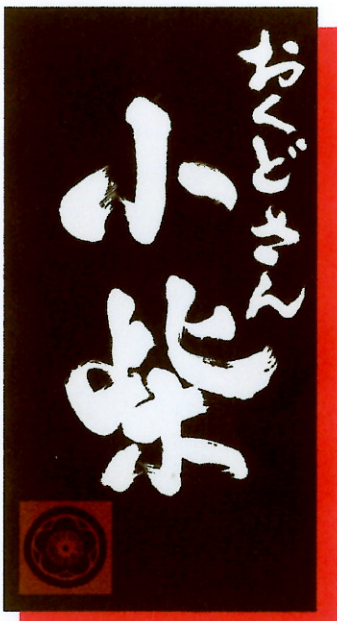 おくどさん
小柴